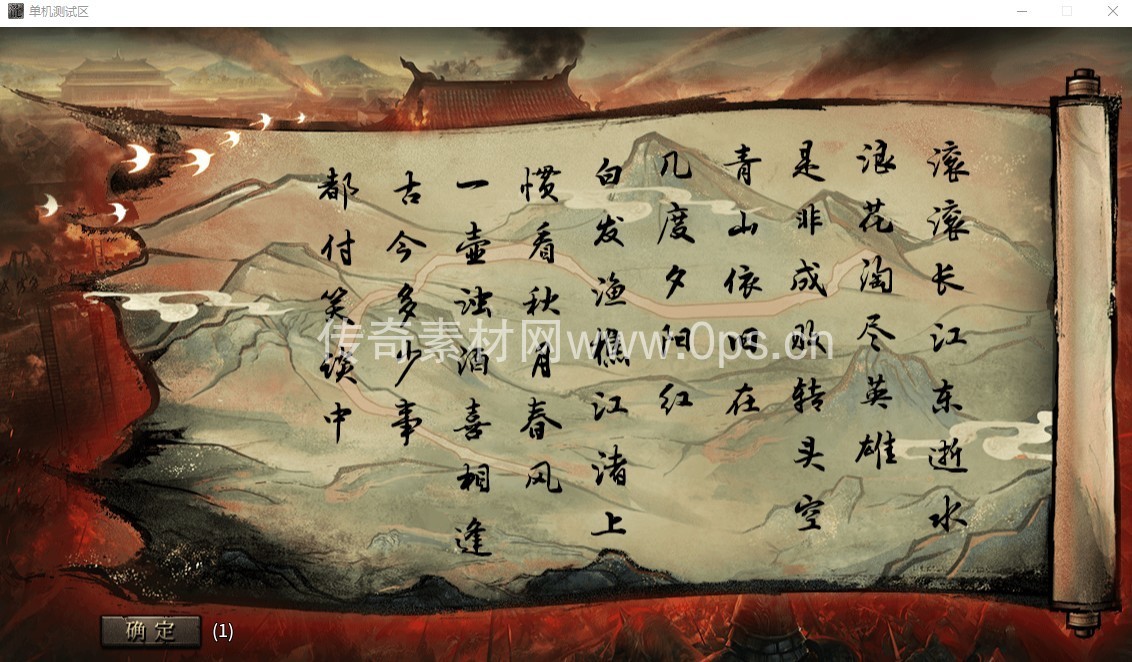 单机测试区
滚滚长江东逝水
浪花淘尽英雄
是非成败转头空
青山依旧在
几度夕阳红
白发渔樵江渚上
惯看秋月春风
一壶浊酒喜相逢
古今多少事
都付笑谈中
传奇素材网www.0ps.cn
确定 (1)